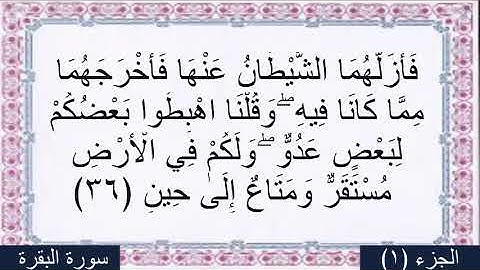 فَأَزَلَّهُمَا الشَّيْطَانُ عَنْهَا فَأَخْرَجَهُمَا
مِمَّا كَانَا فِيهِ ۖ وَقُلْنَا اهْبِطُوا بَعْضُكُمْ
لِبَعْضٍ عَدُوٌّ ۖ وَلَكُمْ فِي الْأَرْضِ
مُسْتَقَرٌّ وَمَتَاعٌ إِلَىٰ حِينٍ (٣٦)
الجزء (١)
سورة البقرة